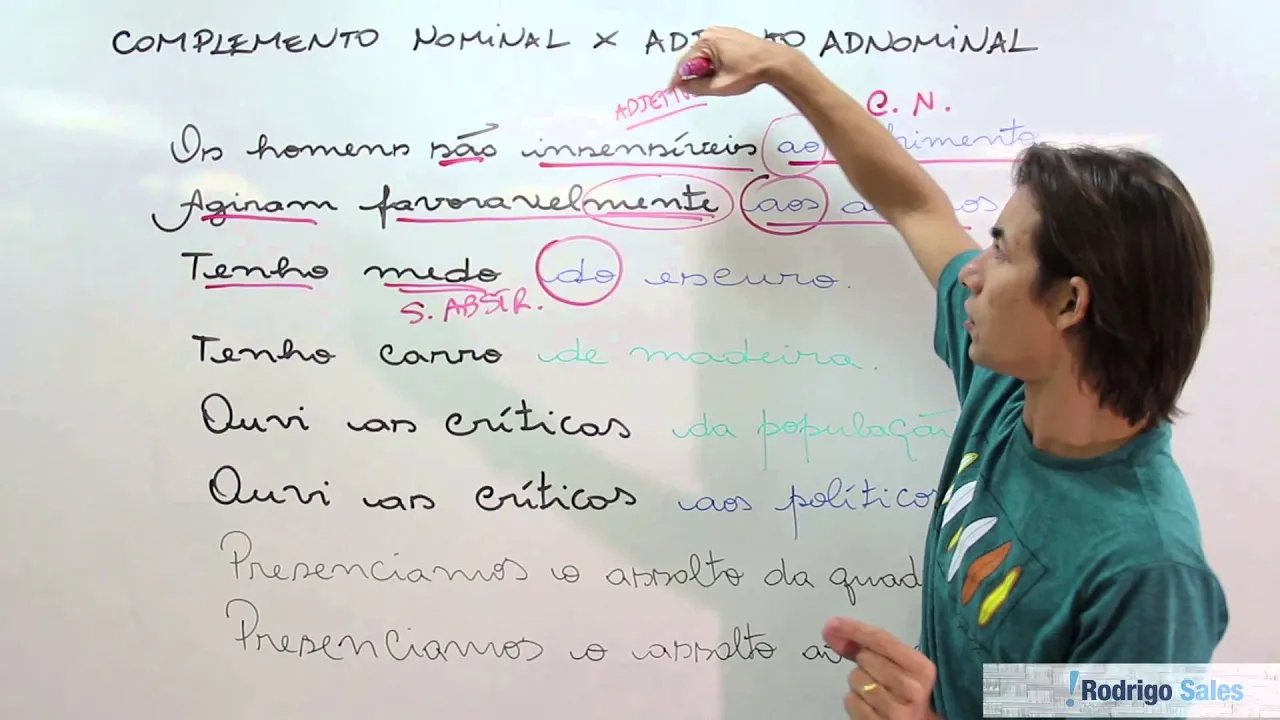 COMPLEMENTO NOMINAL X ADNOMINAL
ADJETIVO
C. N.
Os homens são insensíveis ao
Agiram favoravelmente aos
Tenho medo do escuro.
S. ABSTR.
Tenho carro de madeira.
Ouvi as críticas da população
Ouvi as críticas aos políticos
Presenciamos o assalto da
Presenciamos o assalto
!Rodrigo Sales